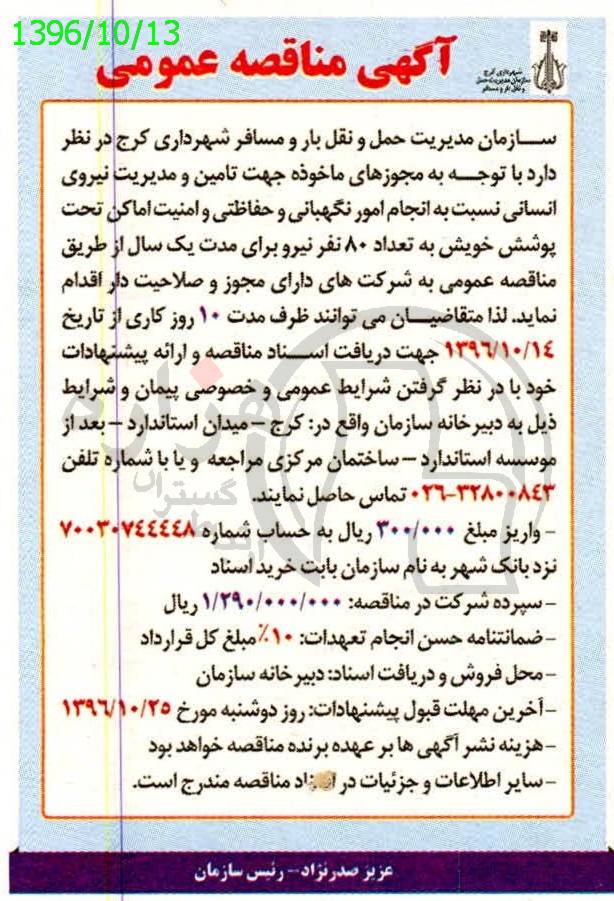 1396/10/13
آگهی مناقصه عمومی
شهرداری کرج
سازمان مدیریت حمل
و نقل بار و مسافر
ســازمان مدیریت حمل و نقل بار و مسافر شهرداری کرج در نظر
دارد با توجــه به مجوزهای ماخوذه جهت تامین و مدیریت نیروی
انسانی نسبت به انجام امور نگهبانی و حفاظتی و امنیت اماکن تحت
پوشش خویش به تعداد ۸۰ نفر نیرو برای مدت یک سال از طریق
مناقصه عمومی به شرکت های دارای مجوز و صلاحیت دار اقدام
نماید. لذا متقاضیــان می توانند ظرف مدت ۱۰ روز کاری از تاریخ
۱۳۹۶/۱۰/۱۴ جهت دریافت اســناد مناقصه و ارائه پیشنهادات
خود با در نظر گرفتن شرایط عمومی و خصوصی پیمان و شرایط
ذیل به دبیرخانه سازمان واقع در: کرج – میدان استاندارد – بعد از
موسسه استاندارد – ساختمان مرکزی مراجعه و یا با شماره تلفن
۰۲۶-۳۲۸۰۰۸۴۳ تماس حاصل نمایند.
- واریز مبلغ ۳۰۰/۰۰۰ ریال به حساب شماره ۷۰۰۳۰۷۴۴۴۴۴۸
نزد بانک شهر به نام سازمان بابت خرید اسناد
- سپرده شرکت در مناقصه: ۱/۲۹۰/۰۰۰/۰۰۰ ریال
- ضمانتنامه حسن انجام تعهدات: ۱۰٪ مبلغ کل قرارداد
- محل فروش و دریافت اسناد: دبیرخانه سازمان
- آخرین مهلت قبول پیشنهادات: روز دوشنبه مورخ ۱۳۹۶/۱۰/۲۵
- هزینه نشر آگهی ها بر عهده برنده مناقصه خواهد بود
- سایر اطلاعات و جزئیات در اسناد مناقصه مندرج است.
عزیز صدرنژاد – رئیس سازمان
هزاره
گستران